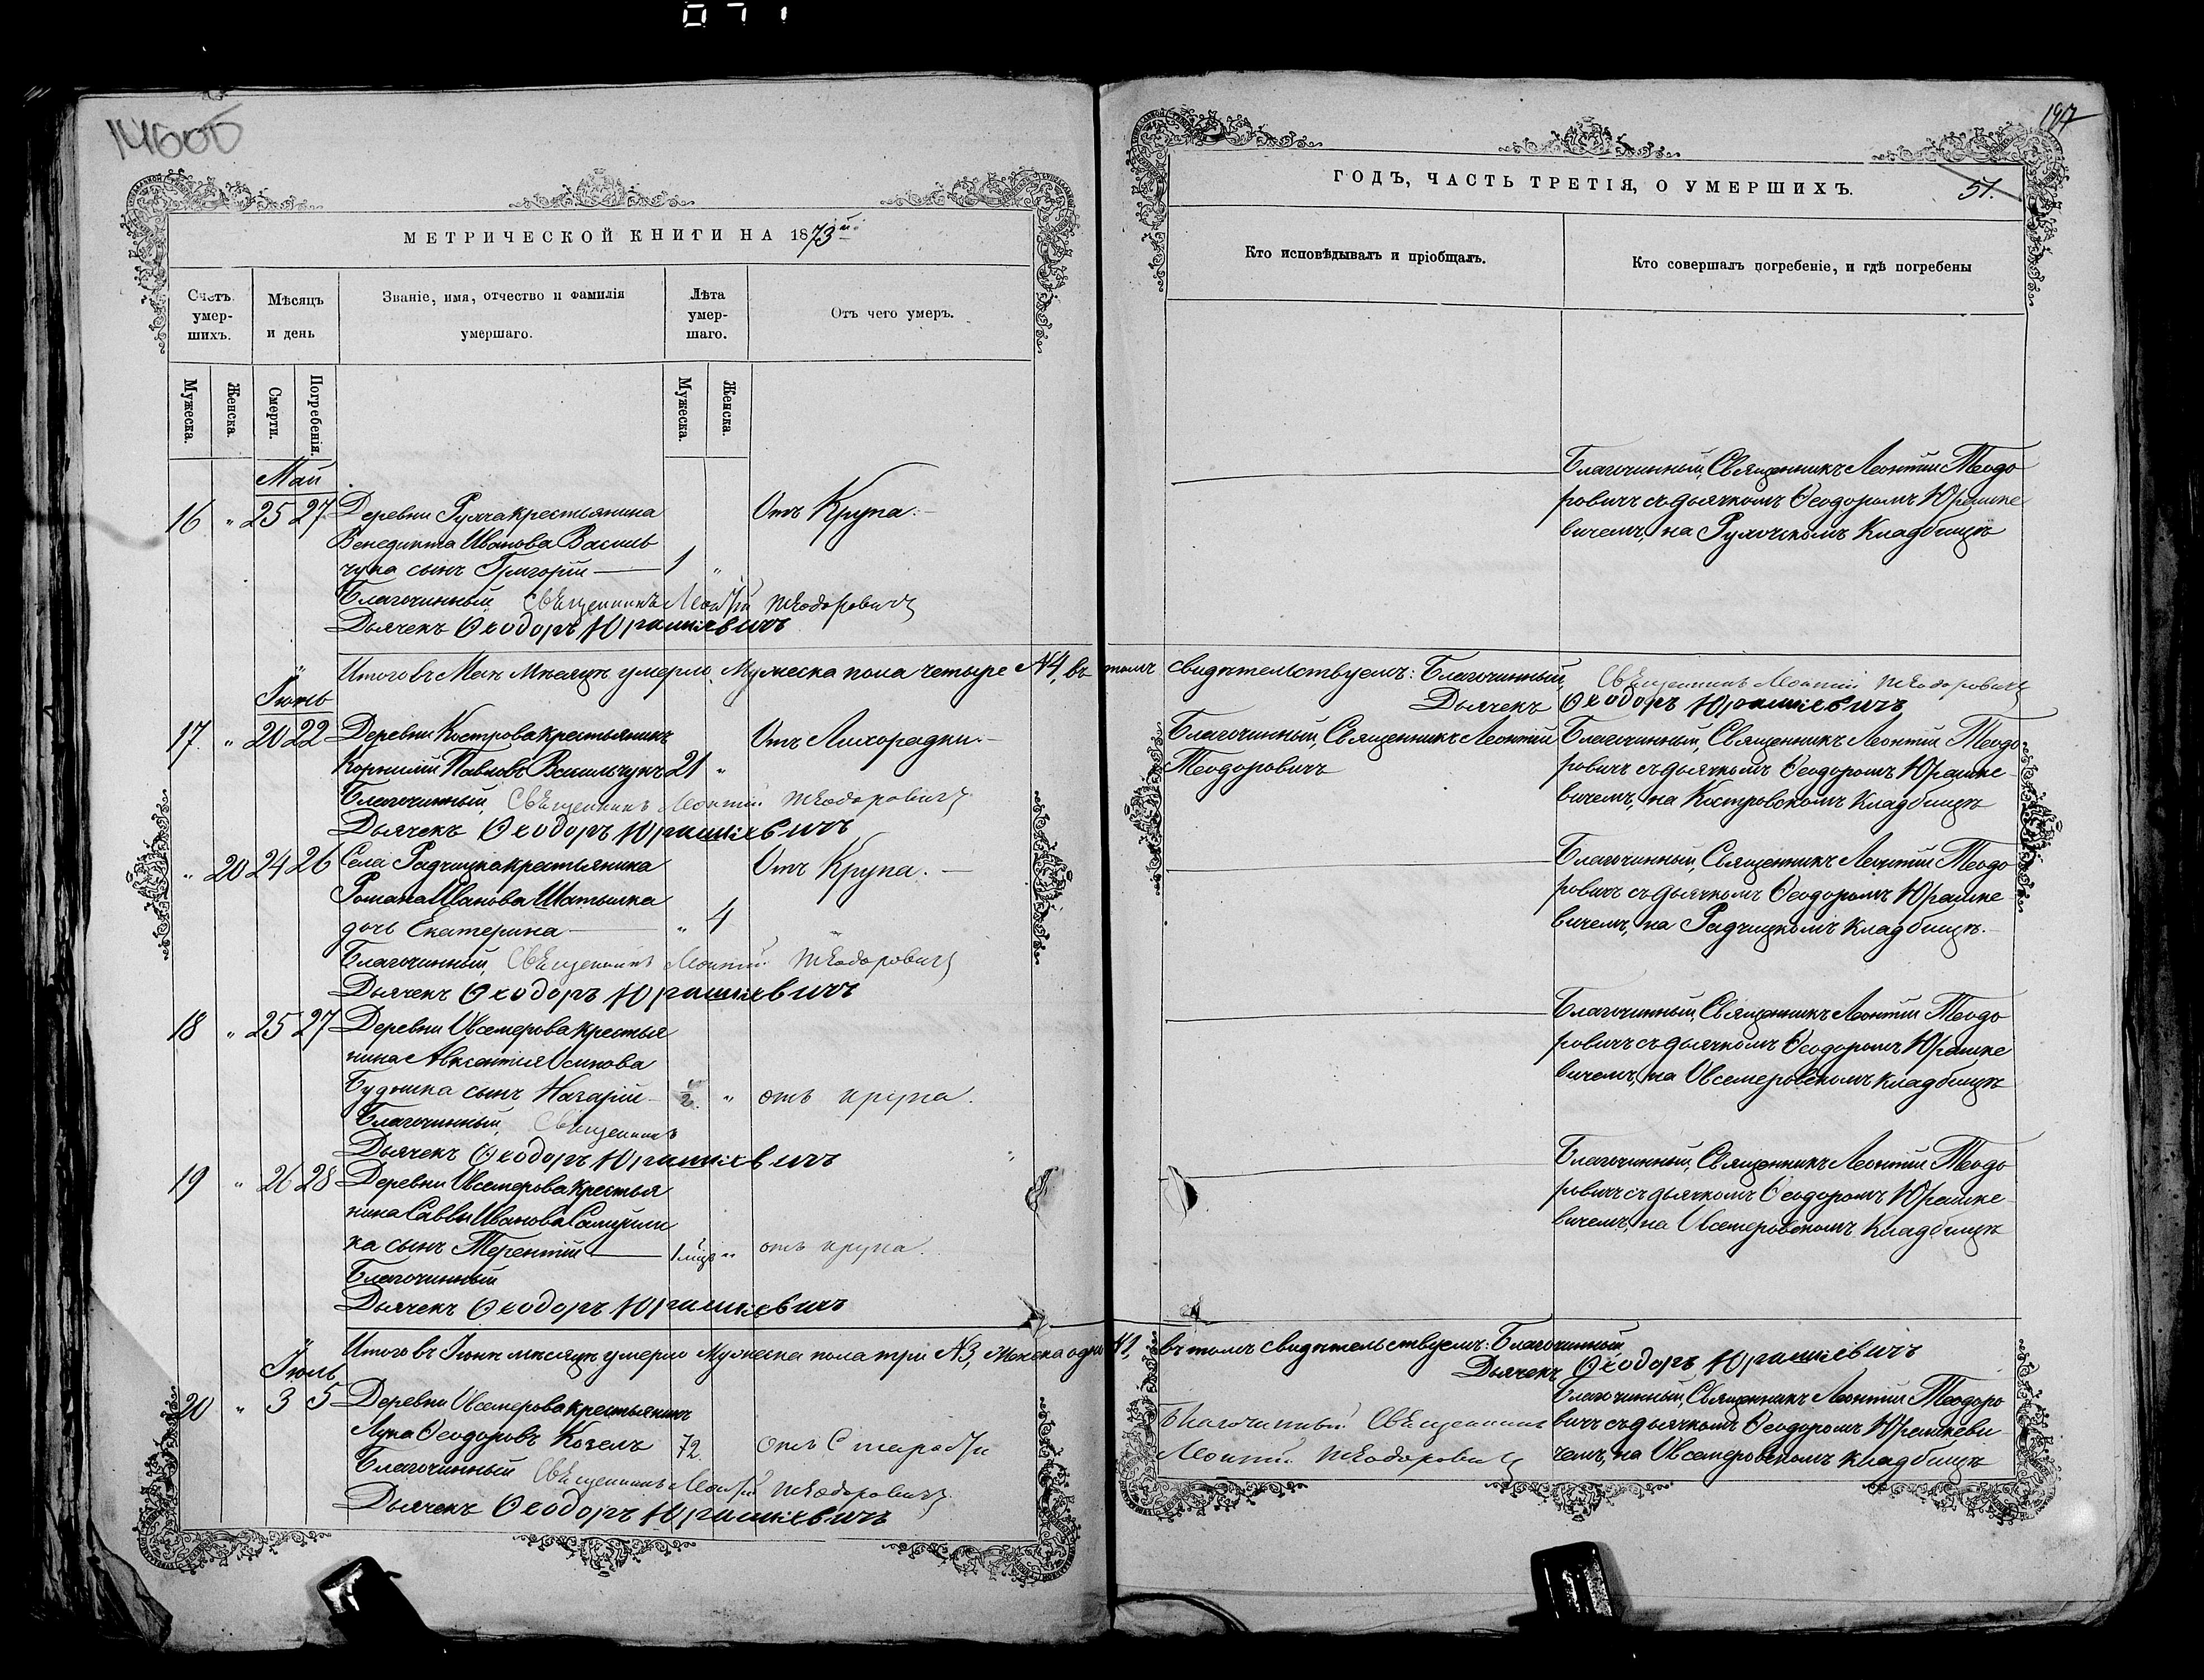 071
14606
МЕТРИЧЕСКОЙ КНИГИ НА 1873й
Счетъ умер-шихъ.
Мѣсяцъ и день
Званіе, имя, отчество и фамилія умершаго.
Лѣта умер-шаго.
Отъ чего умеръ.
Мужеска.
Женска.
Смерти.
Погребенія.
Мужеска.
Женска.
Май
16 " 25 27 Деревни Рулча крестьянина Отъ Крупа.
Венедикта Иванова Василь
чука сынъ Григорій 1 "
Благочинный Священникъ Леонтій Теодоровичъ
Дьячекъ Ѳеодоръ Юрашкевичъ
Итого въ Маѣ мѣсяцѣ умерло Мужеска пола четыре №4, въ томъ
Іюнь
17. " 20 22 Деревни Кострова крестьянинъ Отъ Лихорадки.
Корнилій Павловъ Васильчукъ 21 "
Благочинный, Священникъ Леонтій Теодоровичъ
Дьячекъ Ѳеодоръ Юрашкевичъ
" 20 24 26 Села Радчицка крестьянина Отъ Крупа.
Романа Иванова Шатылка
дочь Екатерина " 4
Благочинный, Священникъ Леонтій Теодоровичъ
Дьячекъ Ѳеодоръ Юрашкевичъ
18 " 25 27 Деревни Овсемерова крестья
нина Авксентія Осипова
Будника сынъ Назарій " отъ крупа.
Благочинный, Священникъ
Дьячекъ Ѳеодоръ Юрашкевичъ
19 " 26 28 Деревни Овсемерова крестья
нина Саввы Иванова
ка сынъ Терентій 1 мца " отъ крупа.
Благочинный
Дьячекъ Ѳеодоръ Юрашкевичъ
Итого въ Іюнѣ мѣсяцѣ умерло Мужеска пола три №3, Женска одна №1,
Іюль
20 " 3 5 Деревни Овсемерова крестьянинъ
Лука Ѳеодоровъ Козелъ 72 отъ Старости
Благочинный Священникъ Леонтій Теодоровичъ
Дьячекъ Ѳеодоръ Юрашкевичъ
197
ГОДЪ, ЧАСТЬ ТРЕТІЯ, О УМЕРШИХЪ.
51.
Кто исповѣдывалъ и пріобщалъ.
Кто совершалъ погребеніе, и гдѣ погребены
Благочинный, Священникъ Леонтій Теодо
ровичъ съ дьячкомъ Ѳеодоромъ Юрашке
вичемъ, на Рулчскомъ Кладбищѣ
свидѣтельствуемъ: Благочинный, Священникъ Леонтій Теодоровичъ
Дьячекъ Ѳеодоръ Юрашкевичъ
Благочинный, Священникъ Леонтій
Теодоровичъ
Благочинный, Священникъ Леонтій Теодо
ровичъ съ дьячкомъ Ѳеодоромъ Юрашке
вичемъ, на Костровскомъ Кладбищѣ
Благочинный, Священникъ Леонтій Теодо
ровичъ съ дьячкомъ Ѳеодоромъ Юрашке
вичемъ, на Радчицкомъ Кладбищѣ.
Благочинный, Священникъ Леонтій Теодо
ровичъ съ дьячкомъ Ѳеодоромъ Юрашке
вичемъ, на Овсемеровскомъ кладбищѣ
Благочинный, Священникъ Леонтій Теодо
ровичъ съ дьячкомъ Ѳеодоромъ Юрашке
вичемъ, на Овсемеровскомъ Кладбищѣ
въ томъ свидѣтельствуемъ: Благочинный
Дьячекъ Ѳеодоръ Юрашкевичъ
Благочинный Священникъ
Леонтій Теодоровичъ
Благочинный, Священникъ Леонтій Теодоро
вичъ съ дьячкомъ Ѳеодоромъ Юрашкеви
чемъ, на Овсемеровскомъ кладбищѣ